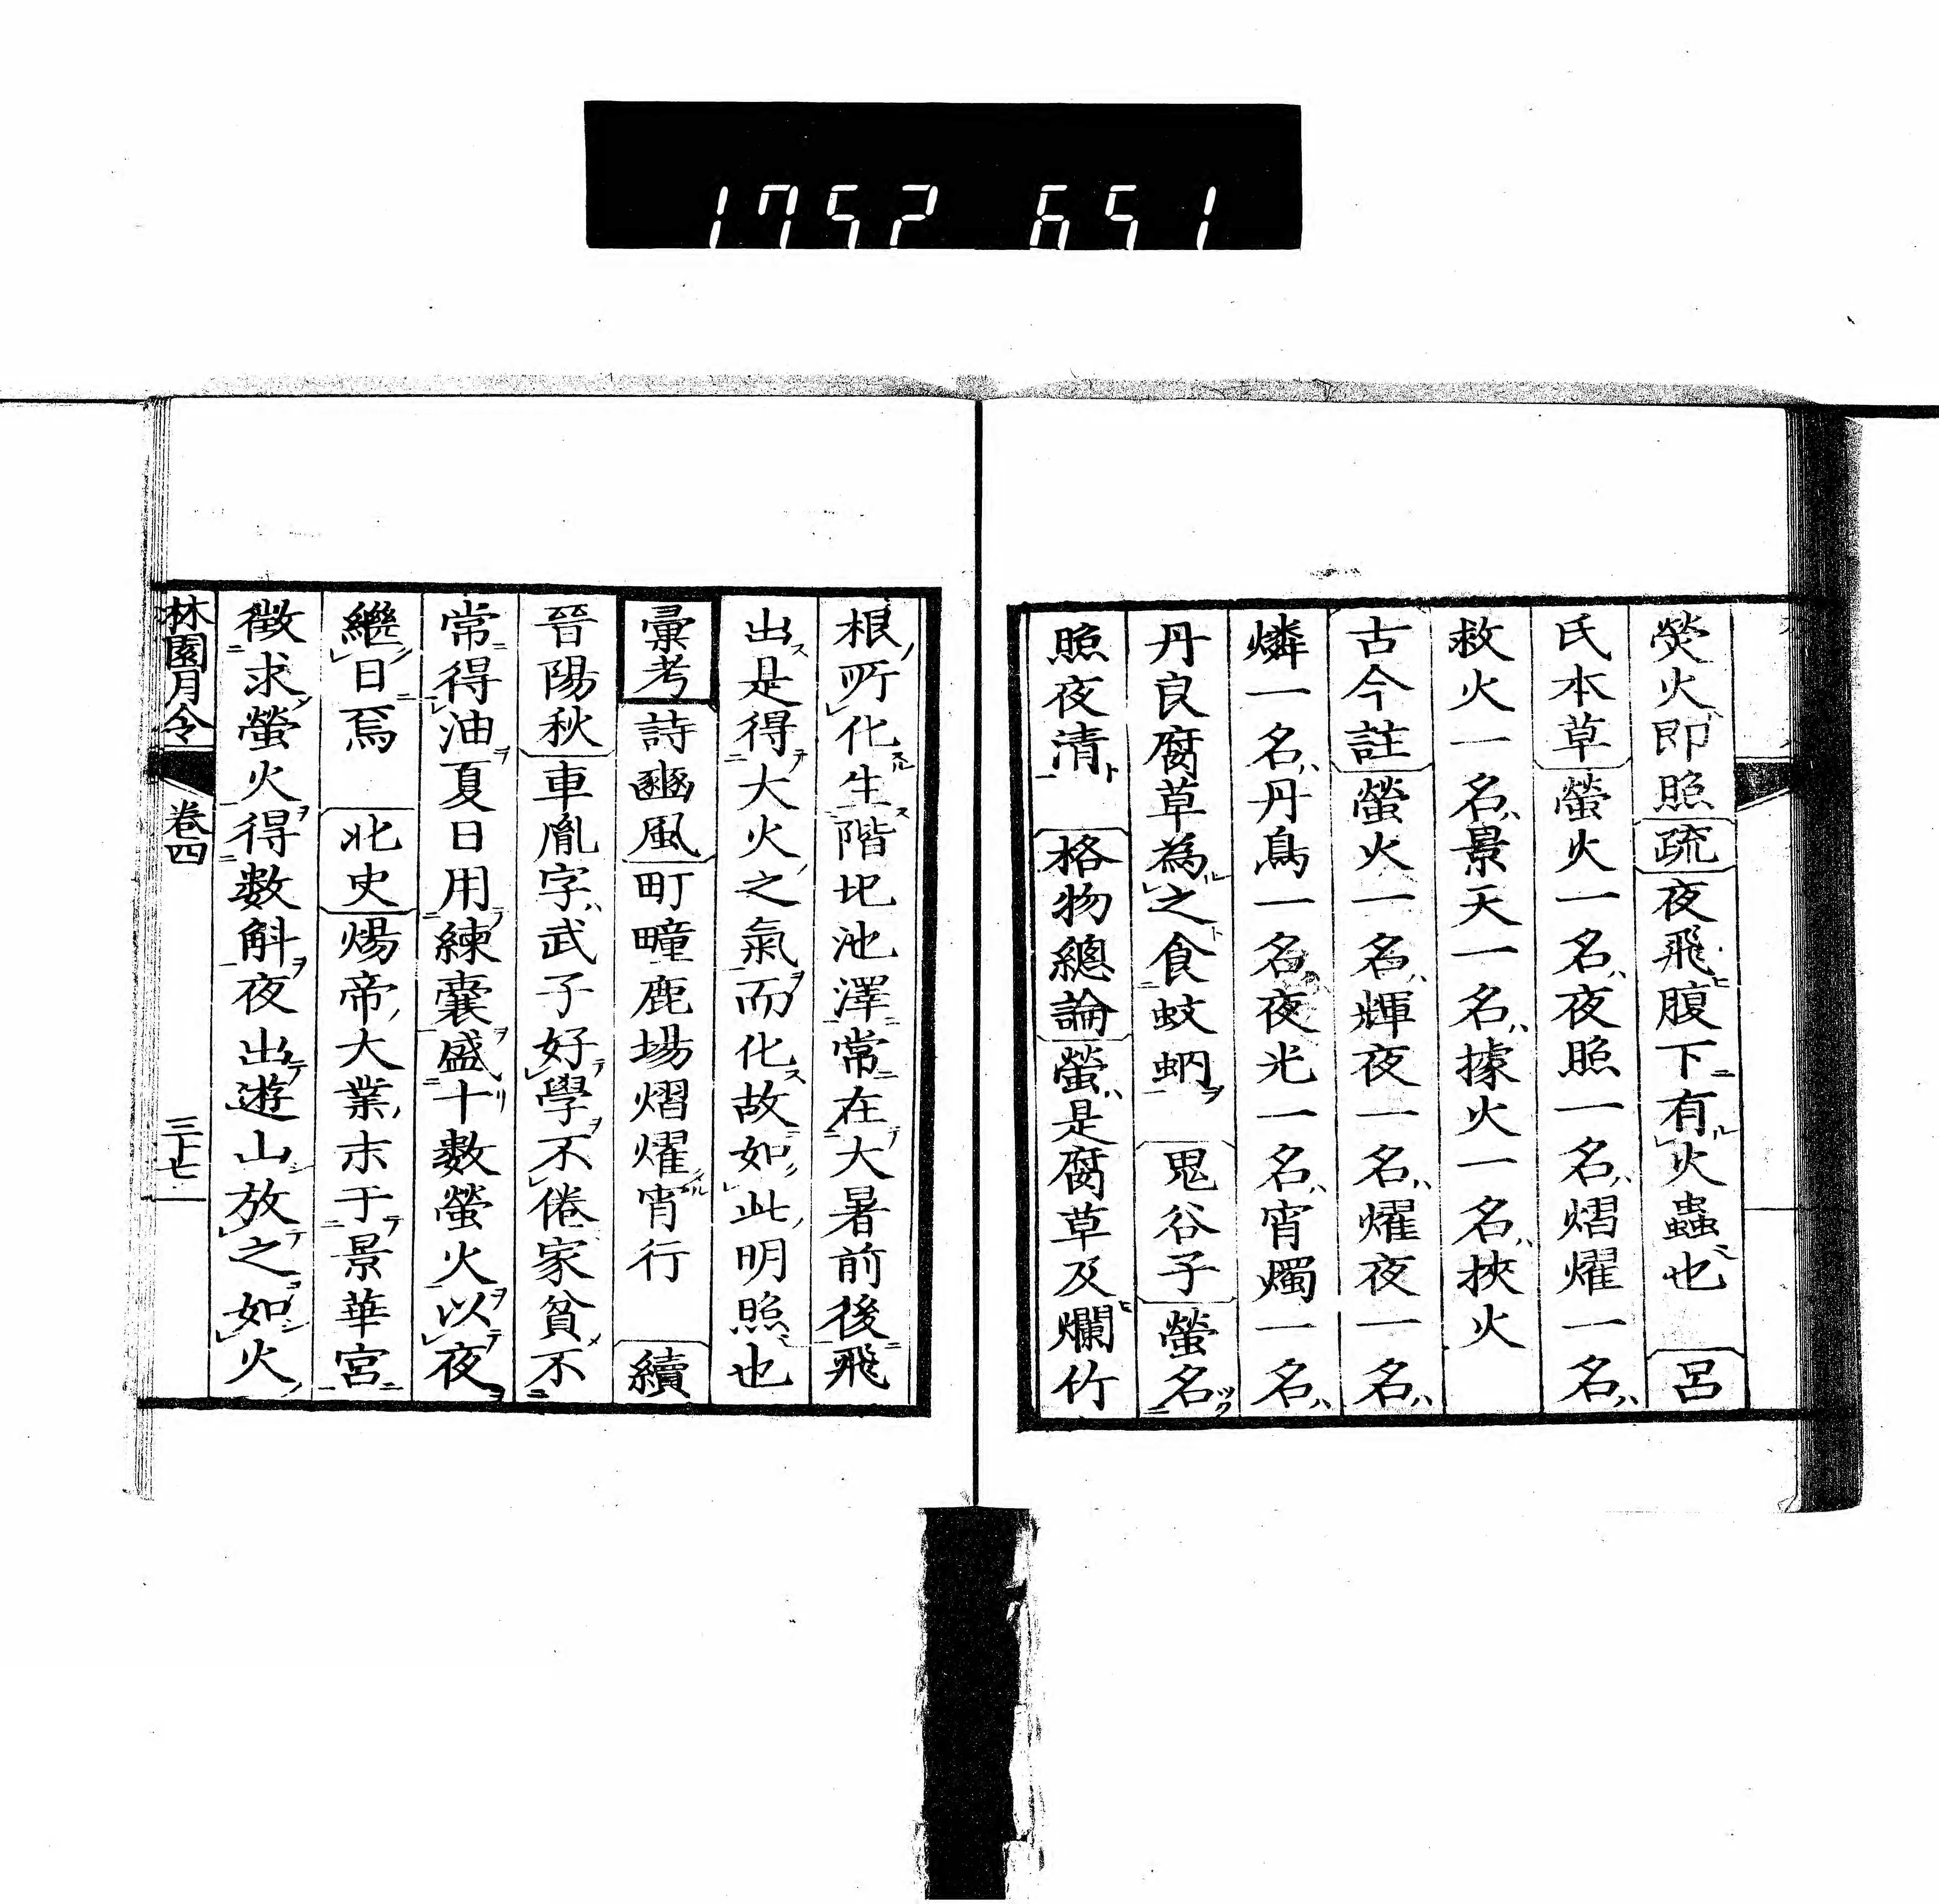 1752 651
熒火即照疏夜飛腹下有火蟲也呂
氏本草螢火一名夜照一名熠燿一名
救火一名景天一名據火一名挾火
古今註螢火一名輝夜一名燿夜一名
燐一名丹鳥一名夜光一名宵燭一名
丹良腐草為之食蚊蚋鬼谷子螢名
照夜清格物總論螢是腐草及爛竹
根所化生階圯池澤常在大暑前後飛
出是得大火之氣而化故如此明照也
彙考詩豳風町疃鹿場熠燿宵行續
晉陽秋車胤字武子好學不倦家貧不
常得油夏日用練囊盛十數螢火以夜
繼日焉北史煬帝大業末于景華宮
徵求螢火得数斛夜出遊山放之如火
林園月令 卷四 三十七